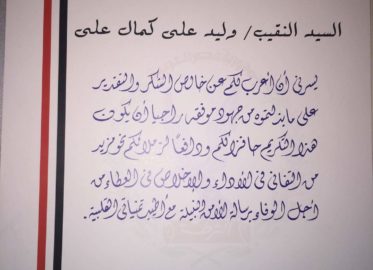 السيد النقيب/ وليد على كمال على
يسرنى أن أعرب لكم عن خالص الشكر والتقدير
على ما بذلتموه من جهود موفقه راجيا أن يكون
هذا التكريم حافزا لكم ودافعًا لزملائكم نحو مزيد
من التفانى فى الأداء والإخلاص فى العطاء من
أجل الوفاء برسالة الأمن النبيلة مع أطيب تمنياتى القلبية.